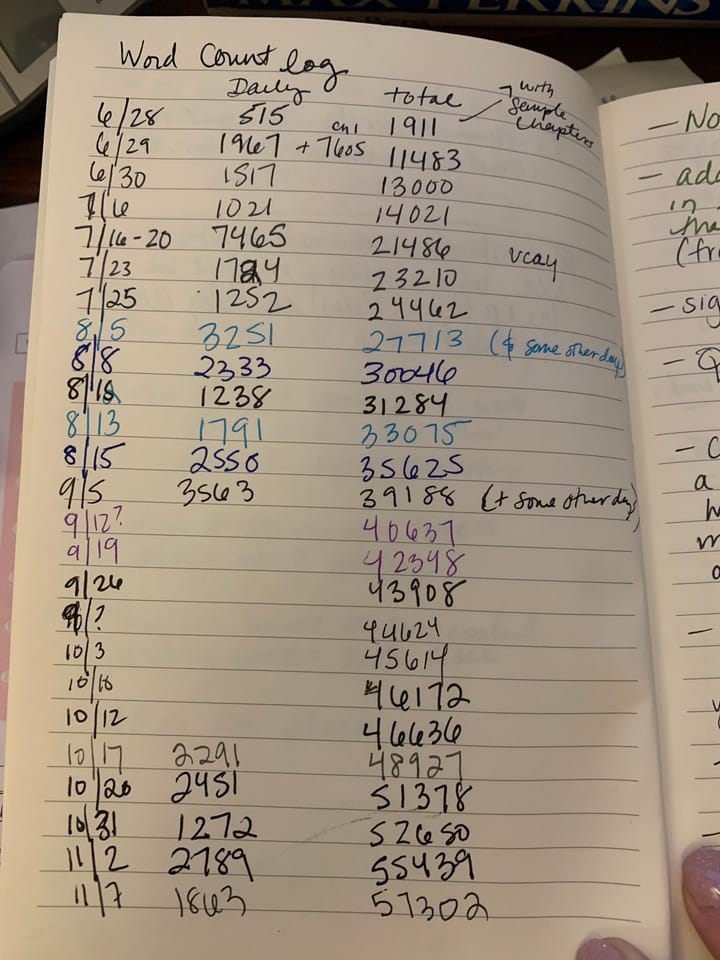 MAX PERKINS
Word Count log
Daily total → with
6/28 515 1911 Sample
chapters
6/29 1967 + ch1 7605 11483
6/30 1517 13000
7/6 1021 14021
7/16-20 7465 21486 vcay
7/23 1724 23210
7/25 1252 24462
8/5 3251 27713 (& some other day)
8/8 2333 30046
8/12 1238 31284
8/13 1791 33075
8/15 2550 35625
9/5 3563 39188 (+ some other day)
9/12? 40637
9/19 42398
9/26 43908
9/? 44624
10/3 45614
10/10 46172
10/12 46636
10/17 2291 48927
10/20 2451 51378
10/31 1272 52650
11/2 2789 55439
11/7 1863 57302
— No
— add
in
tha
(fr
— sig
— C
a